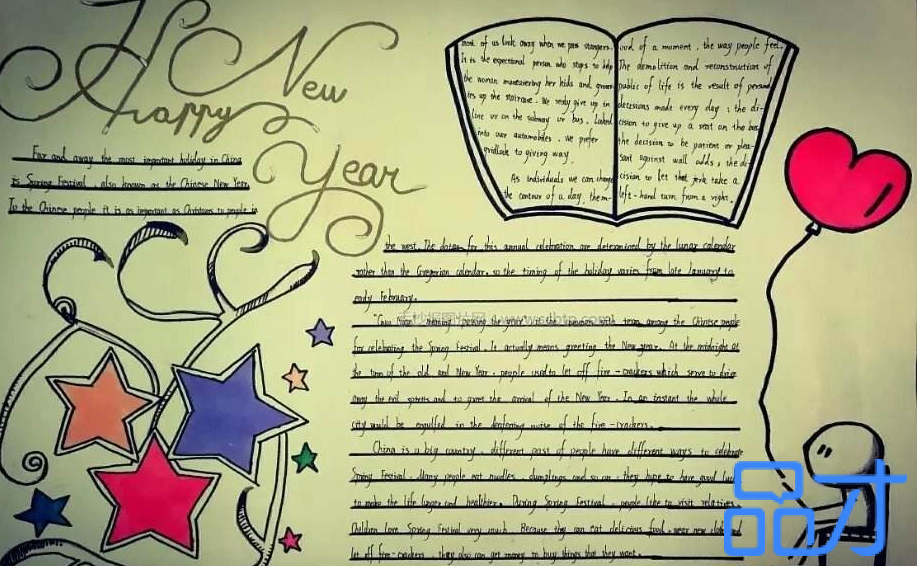 Happy New Year
Far and away the most important holiday in China
is Spring Festival, also known as the Chinese New Year
To the Chinese people it is as important as Christmas to people in
most of us look away when we pass strangers.
It is the expectional person who stops to help
the woman maneuvering her kids and
up the staircase. We rarely give up in
line or on the subway or bus.
into our automobiles, we prefer
gridlock to giving way
As individuals we can change
the contour of a day, the m-
ood of a moment, the way people feel.
The demolition and reconstruction of
public of life is the result of personal
decisions made every day: the di-
cision to give up a seat on the bus
the decision to be patient or plea-
sant against wall odds, the di-
cision to let that jerk take a
left-hand turn from a right.
the west. The dates for this annual celebration are determined by the lunar calendar
rather than the Gregorian calendar, so the timing of the holiday varies from late January to
early February.
meaning passing the year is the common term among the Chinese people
for celebrating the Spring Festival. It actually means greeting the New year. At the midnight at
the turn of the old and New Year, people used to let off fire-crackers which serve to drive
away the evil spirits and to greet the arrival of the New Year. In an instant the whole
city would be engulfed in the deafening noise of the fire-crackers.
China is a big country, different of people have different ways to celebrate
Spring Festival. Many people eat noodles, dumplings and so on, they hope to have good luck
to make the life longer and healthier. During Spring Festival, people like to visit relatives
Children love Spring Festival very much. Because they can eat delicious food, wear new
let off fire-crackers, they also can get money to buy things that they want.
品才